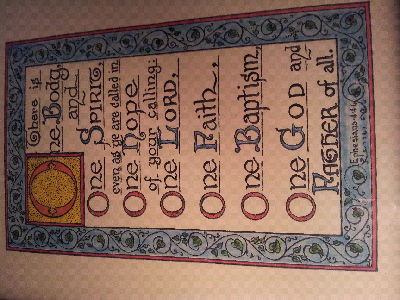 There is
One Body,
and
One Spirit,
even as ye are called in
One Hope
of your calling:
One Lord,
One Faith,
One Baptism,
One God and
Father of all.
Ephesians 4:4-6